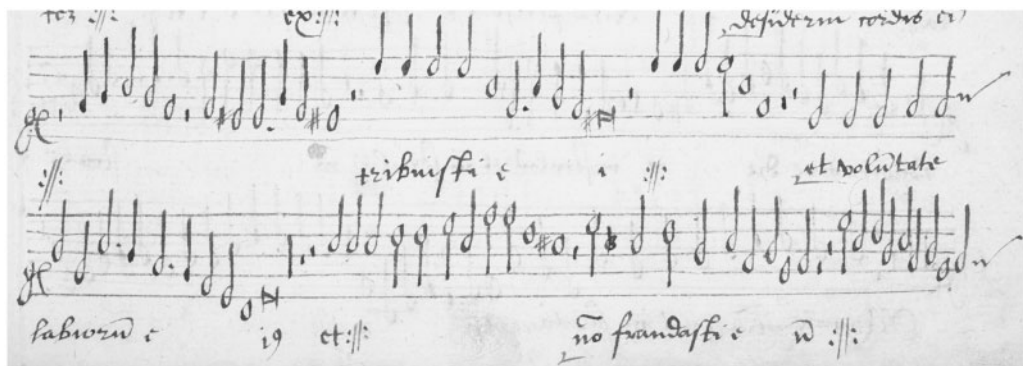 tez :||: ex :||: desideriũ cordis ei9
:||: tribuisti e i :||: et volũtate
labiorũ e i9 et :||: nõ fraudasti e ũ :||: